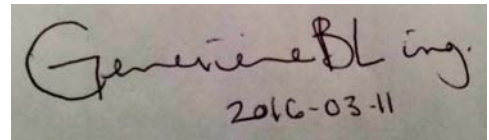 Genevieve BL ing.
2016-03-11